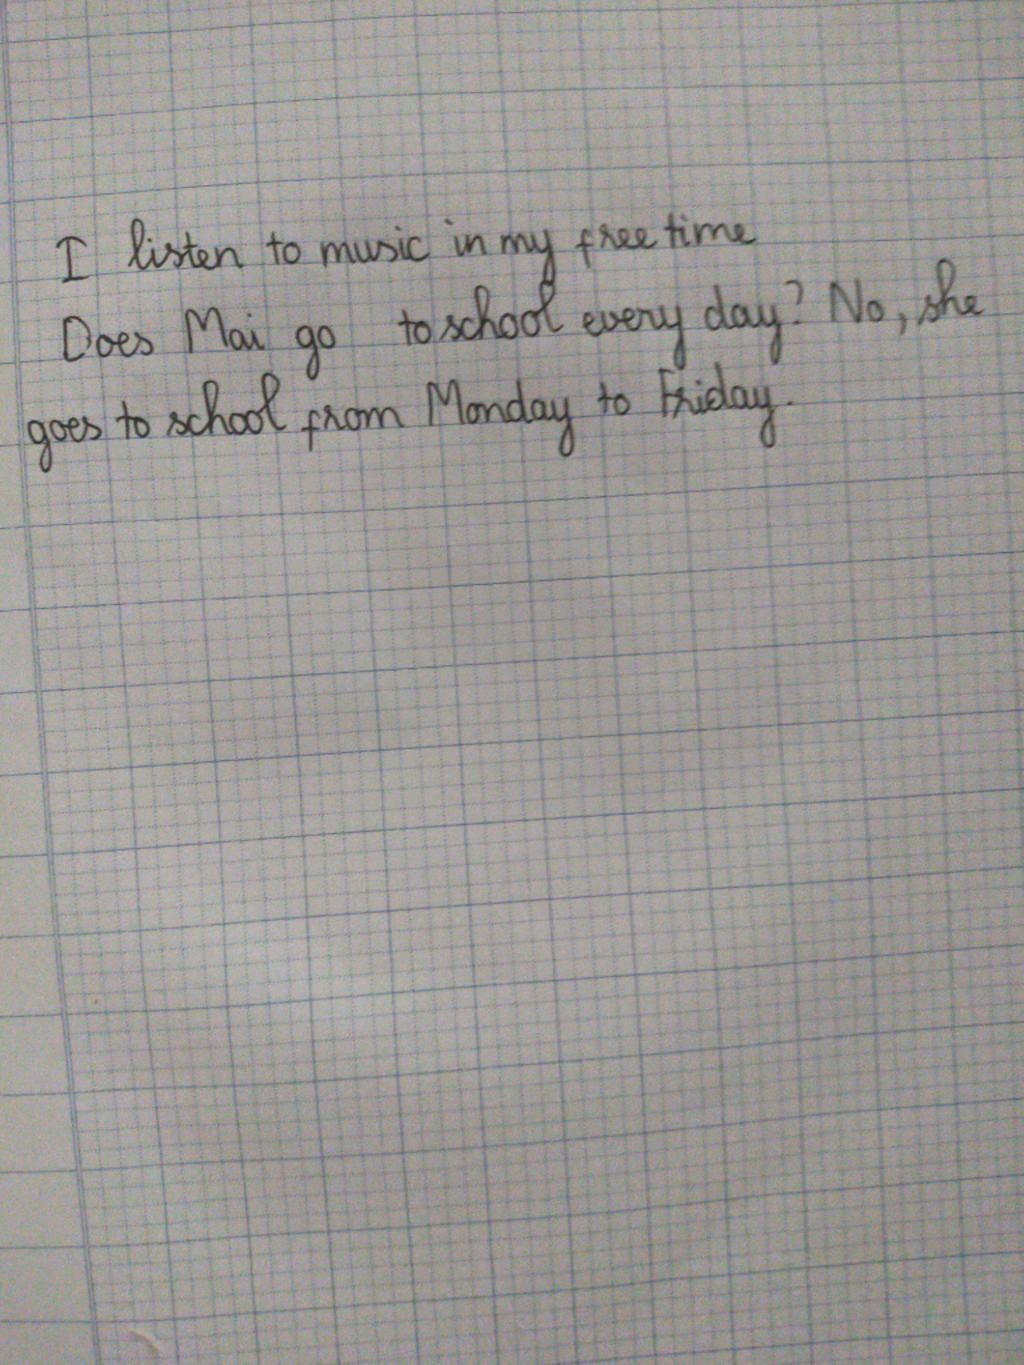 I listen to music in my free time
Does Mai go to school every day? No, she
goes to school from Monday to Friday.